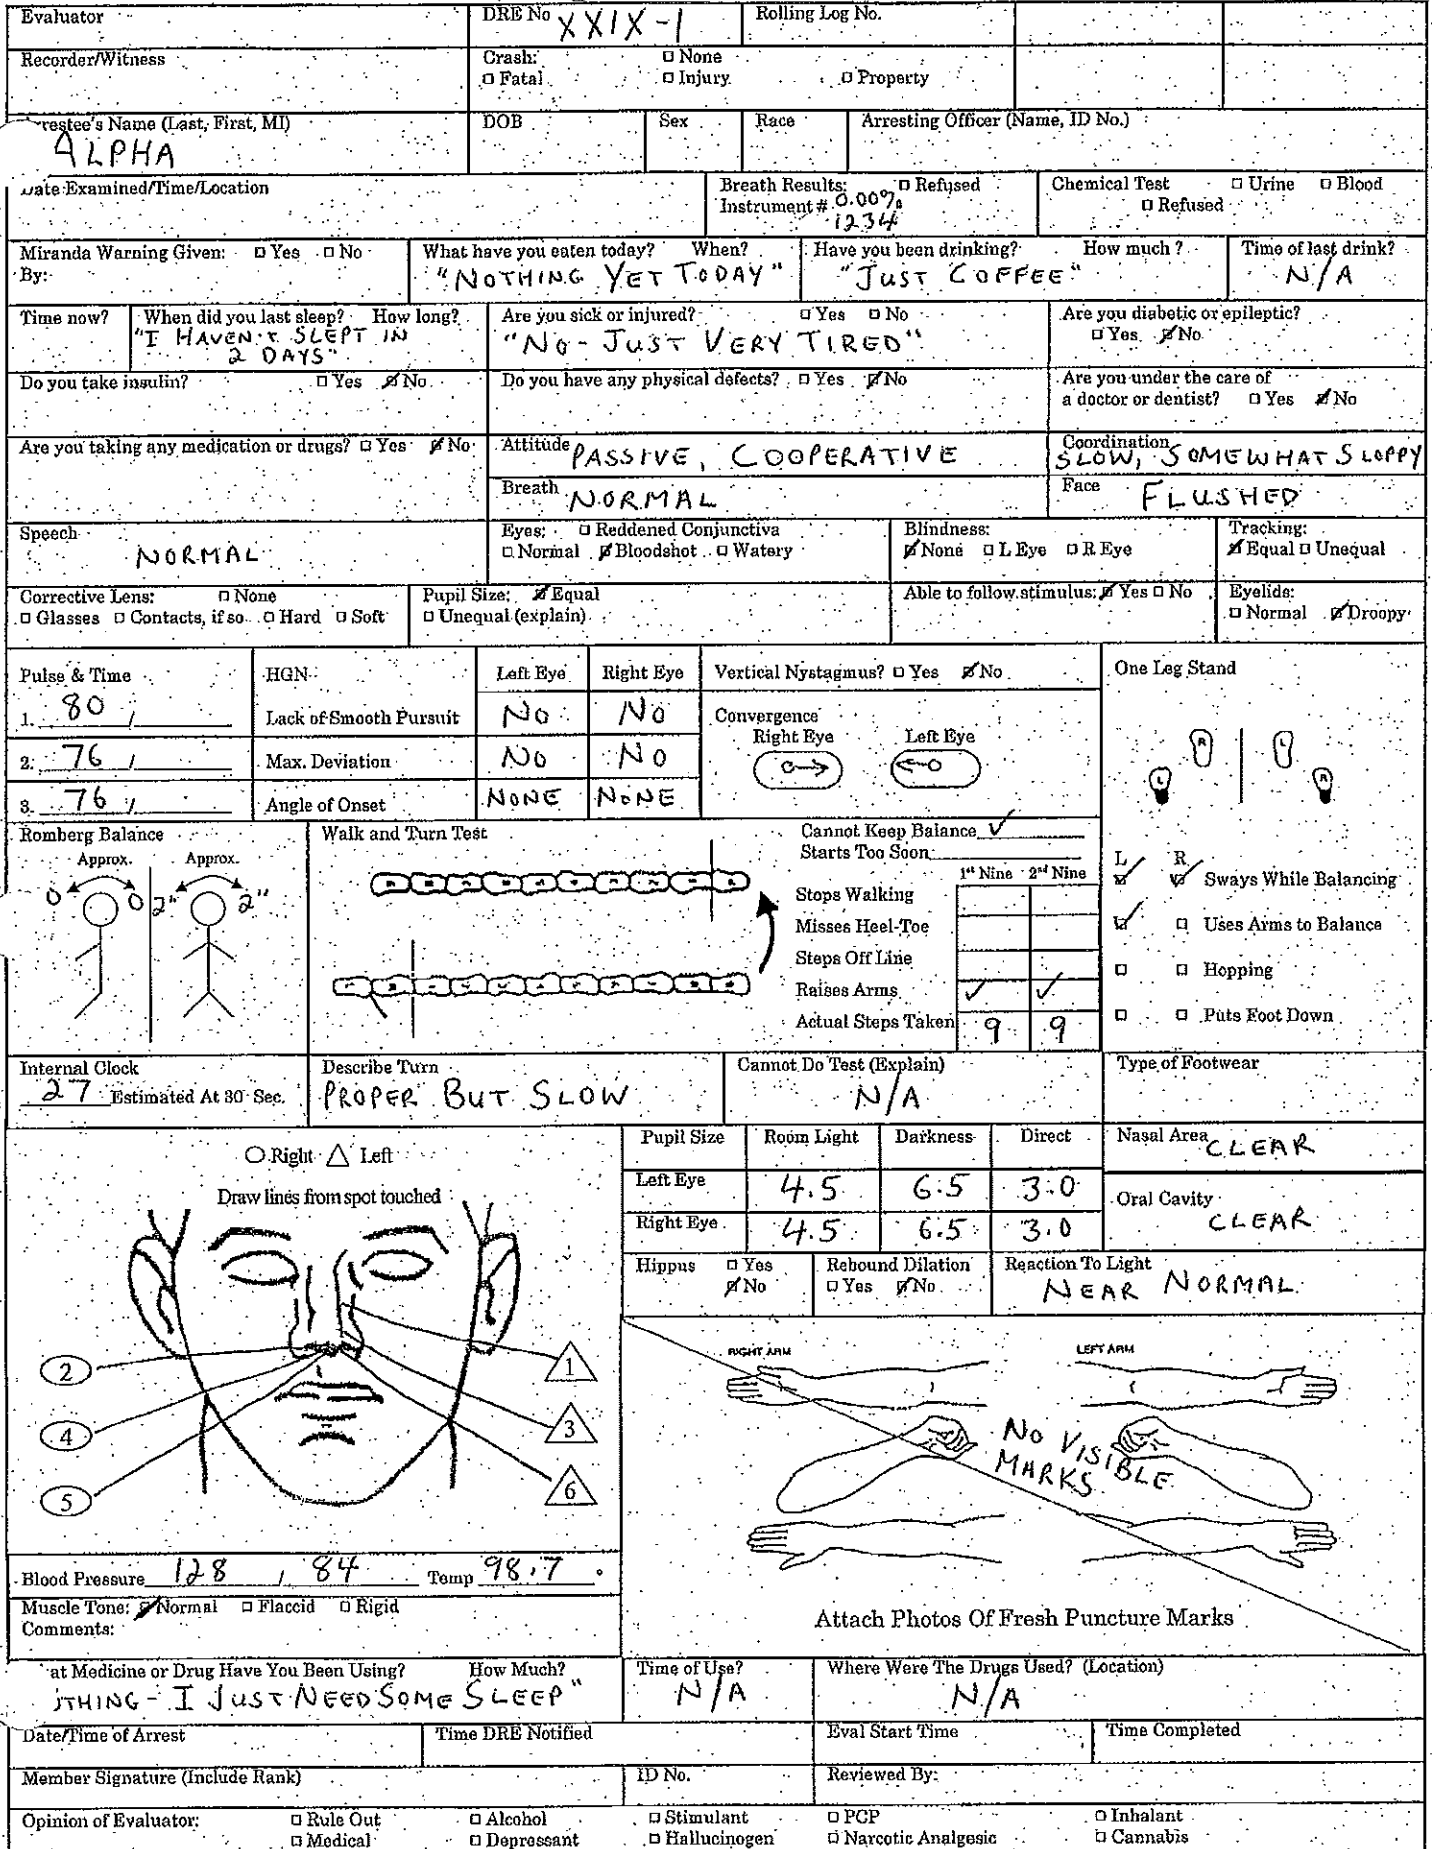 Evaluator
DRE No XXIX-1
Rolling Log No.
Recorder/Witness
Crash: □ None
□ Fatal □ Injury □ Property
restee's Name (Last, First, MI)
ALPHA
DOB
Sex
Race
Arresting Officer (Name, ID No.)
Date Examined/Time/Location
Breath Results: □ Refused
Instrument # 0.00%
1234
Chemical Test □ Urine □ Blood
□ Refused
Miranda Warning Given: □ Yes □ No
By:
What have you eaten today? When?
"NOTHING YET TODAY"
Have you been drinking? How much?
"JUST COFFEE"
Time of last drink?
N/A
Time now?
When did you last sleep? How long?
"I HAVEN'T SLEPT IN
2 DAYS"
Are you sick or injured? □ Yes □ No
"NO - JUST VERY TIRED"
Are you diabetic or epileptic?
□ Yes ☑ No
Do you take insulin? □ Yes ☑ No
Do you have any physical defects? □ Yes ☑ No
Are you under the care of
a doctor or dentist? □ Yes ☑ No
Are you taking any medication or drugs? □ Yes ☑ No
Attitude PASSIVE, COOPERATIVE
Coordination
SLOW, SOMEWHAT SLOPPY
Breath NORMAL
Face FLUSHED
Speech
NORMAL
Eyes: □ Reddened Conjunctiva
□ Normal ☑ Bloodshot □ Watery
Blindness:
☑ None □ L Eye □ R Eye
Tracking:
☑ Equal □ Unequal
Corrective Lens: □ None
□ Glasses □ Contacts, if so □ Hard □ Soft
Pupil Size: ☑ Equal
□ Unequal (explain)
Able to follow stimulus: ☑ Yes □ No
Eyelids:
□ Normal ☑ Droopy
Pulse & Time
1. 80 /
2. 76 /
3. 76 /
HGN Left Eye Right Eye
Lack of Smooth Pursuit NO NO
Max. Deviation NO NO
Angle of Onset NONE NONE
Vertical Nystagmus? □ Yes ☑ No
Convergence
Right Eye Left Eye
One Leg Stand
R L
L R
L R
☑ ☑ Sways While Balancing
☑ □ Uses Arms to Balance
□ □ Hopping
□ □ Puts Foot Down
Romberg Balance
Approx. Approx.
0 0 2" 2"
Walk and Turn Test
Cannot Keep Balance ✓
Starts Too Soon
1st Nine 2nd Nine
Stops Walking
Misses Heel-Toe
Steps Off Line
Raises Arms ✓ ✓
Actual Steps Taken 9 9
Internal Clock
27 Estimated At 30 Sec.
Describe Turn
PROPER BUT SLOW
Cannot Do Test (Explain)
N/A
Type of Footwear
○ Right △ Left
Draw lines from spot touched
2
4
5
1
3
6
Pupil Size Room Light Darkness Direct
Left Eye 4.5 6.5 3.0
Right Eye 4.5 6.5 3.0
Nasal Area CLEAR
Oral Cavity
CLEAR
Hippus □ Yes
☑ No
Rebound Dilation
□ Yes ☑ No
Reaction To Light
NEAR NORMAL
RIGHT ARM
LEFT ARM
NO VISIBLE
MARKS
Attach Photos Of Fresh Puncture Marks
Blood Pressure 128 / 84 Temp 98.7 °
Muscle Tone: ☑ Normal □ Flaccid □ Rigid
Comments:
at Medicine or Drug Have You Been Using? How Much?
THING - I JUST NEED SOME SLEEP"
Time of Use?
N/A
Where Were The Drugs Used? (Location)
N/A
Date/Time of Arrest
Time DRE Notified
Eval Start Time
Time Completed
Member Signature (Include Rank)
ID No.
Reviewed By:
Opinion of Evaluator: □ Rule Out □ Alcohol □ Stimulant □ PCP □ Inhalant
□ Medical □ Depressant □ Hallucinogen □ Narcotic Analgesic □ Cannabis